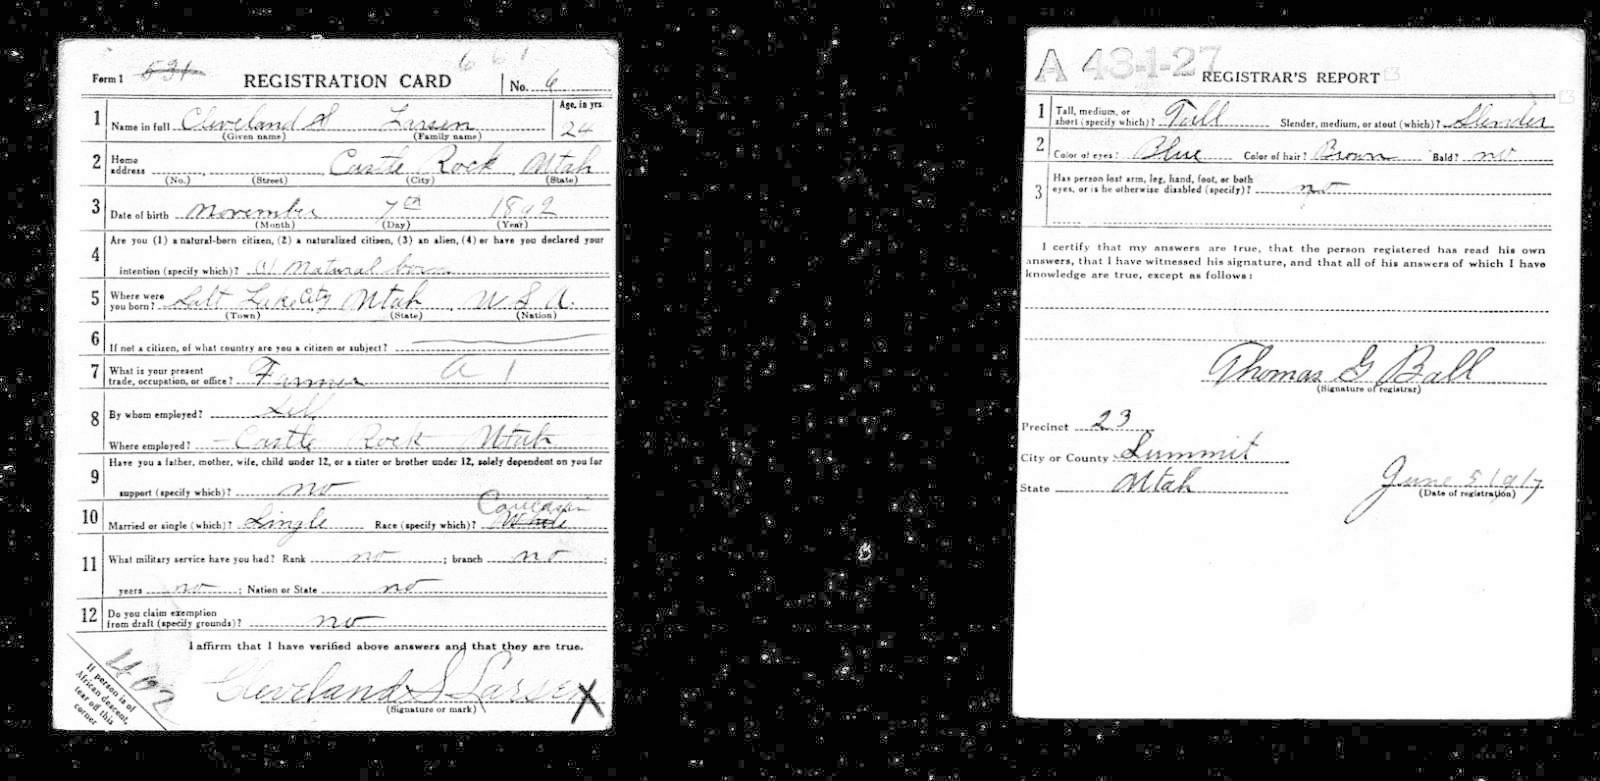 Form 1 531 REGISTRATION CARD 661 No. 6
1 Name in full Cleveland S Larsen Age, in yrs. 24
(Given name) (Family name)
2 Home address Castle Rock Utah
(No.) (Street) (City) (State)
3 Date of birth November 7th 1892
(Month) (Day) (Year)
4 Are you (1) a natural-born citizen, (2) a naturalized citizen, (3) an alien, (4) or have you declared your
intention (specify which)? (1) Natural born
5 Where were you born? Salt Lake City Utah U.S.A.
(Town) (State) (Nation)
6 If not a citizen, of what country are you a citizen or subject?
7 What is your present trade, occupation, or office? Farmer A 1
8 By whom employed? Self
Where employed? Castle Rock Utah
9 Have you a father, mother, wife, child under 12, or a sister or brother under 12, solely dependent on you for
support (specify which)? no
Caucasian
10 Married or single (which)? Single Race (specify which)? White
11 What military service have you had? Rank no ; branch no ;
years no ; Nation or State no
12 Do you claim exemption from draft (specify grounds)? no
I affirm that I have verified above answers and that they are true.
Cleveland S Larsen X
(Signature or mark)
1402
If person is of
African descent,
tear off this
corner
A 43-1-27 REGISTRAR'S REPORT
1 Tall, medium, or short (specify which)? Tall Slender, medium, or stout (which)? Slender
2 Color of eyes? Blue Color of hair? Brown Bald? no
3 Has person lost arm, leg, hand, foot, or both
eyes, or is he otherwise disabled (specify)? no
I certify that my answers are true, that the person registered has read his own
answers, that I have witnessed his signature, and that all of his answers of which I have
knowledge are true, except as follows:
Thomas G Ball
(Signature of registrar)
Precinct 23
City or County Summit
State Utah June 5 1917
(Date of registration)